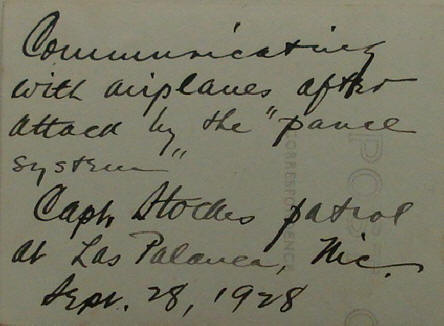 Communicating
with airplanes after
attack by the "panel
system"
Capt. Stockes patrol
at Las Palanca, Nic.
Sept. 28, 1928
CORRESPONDENCE